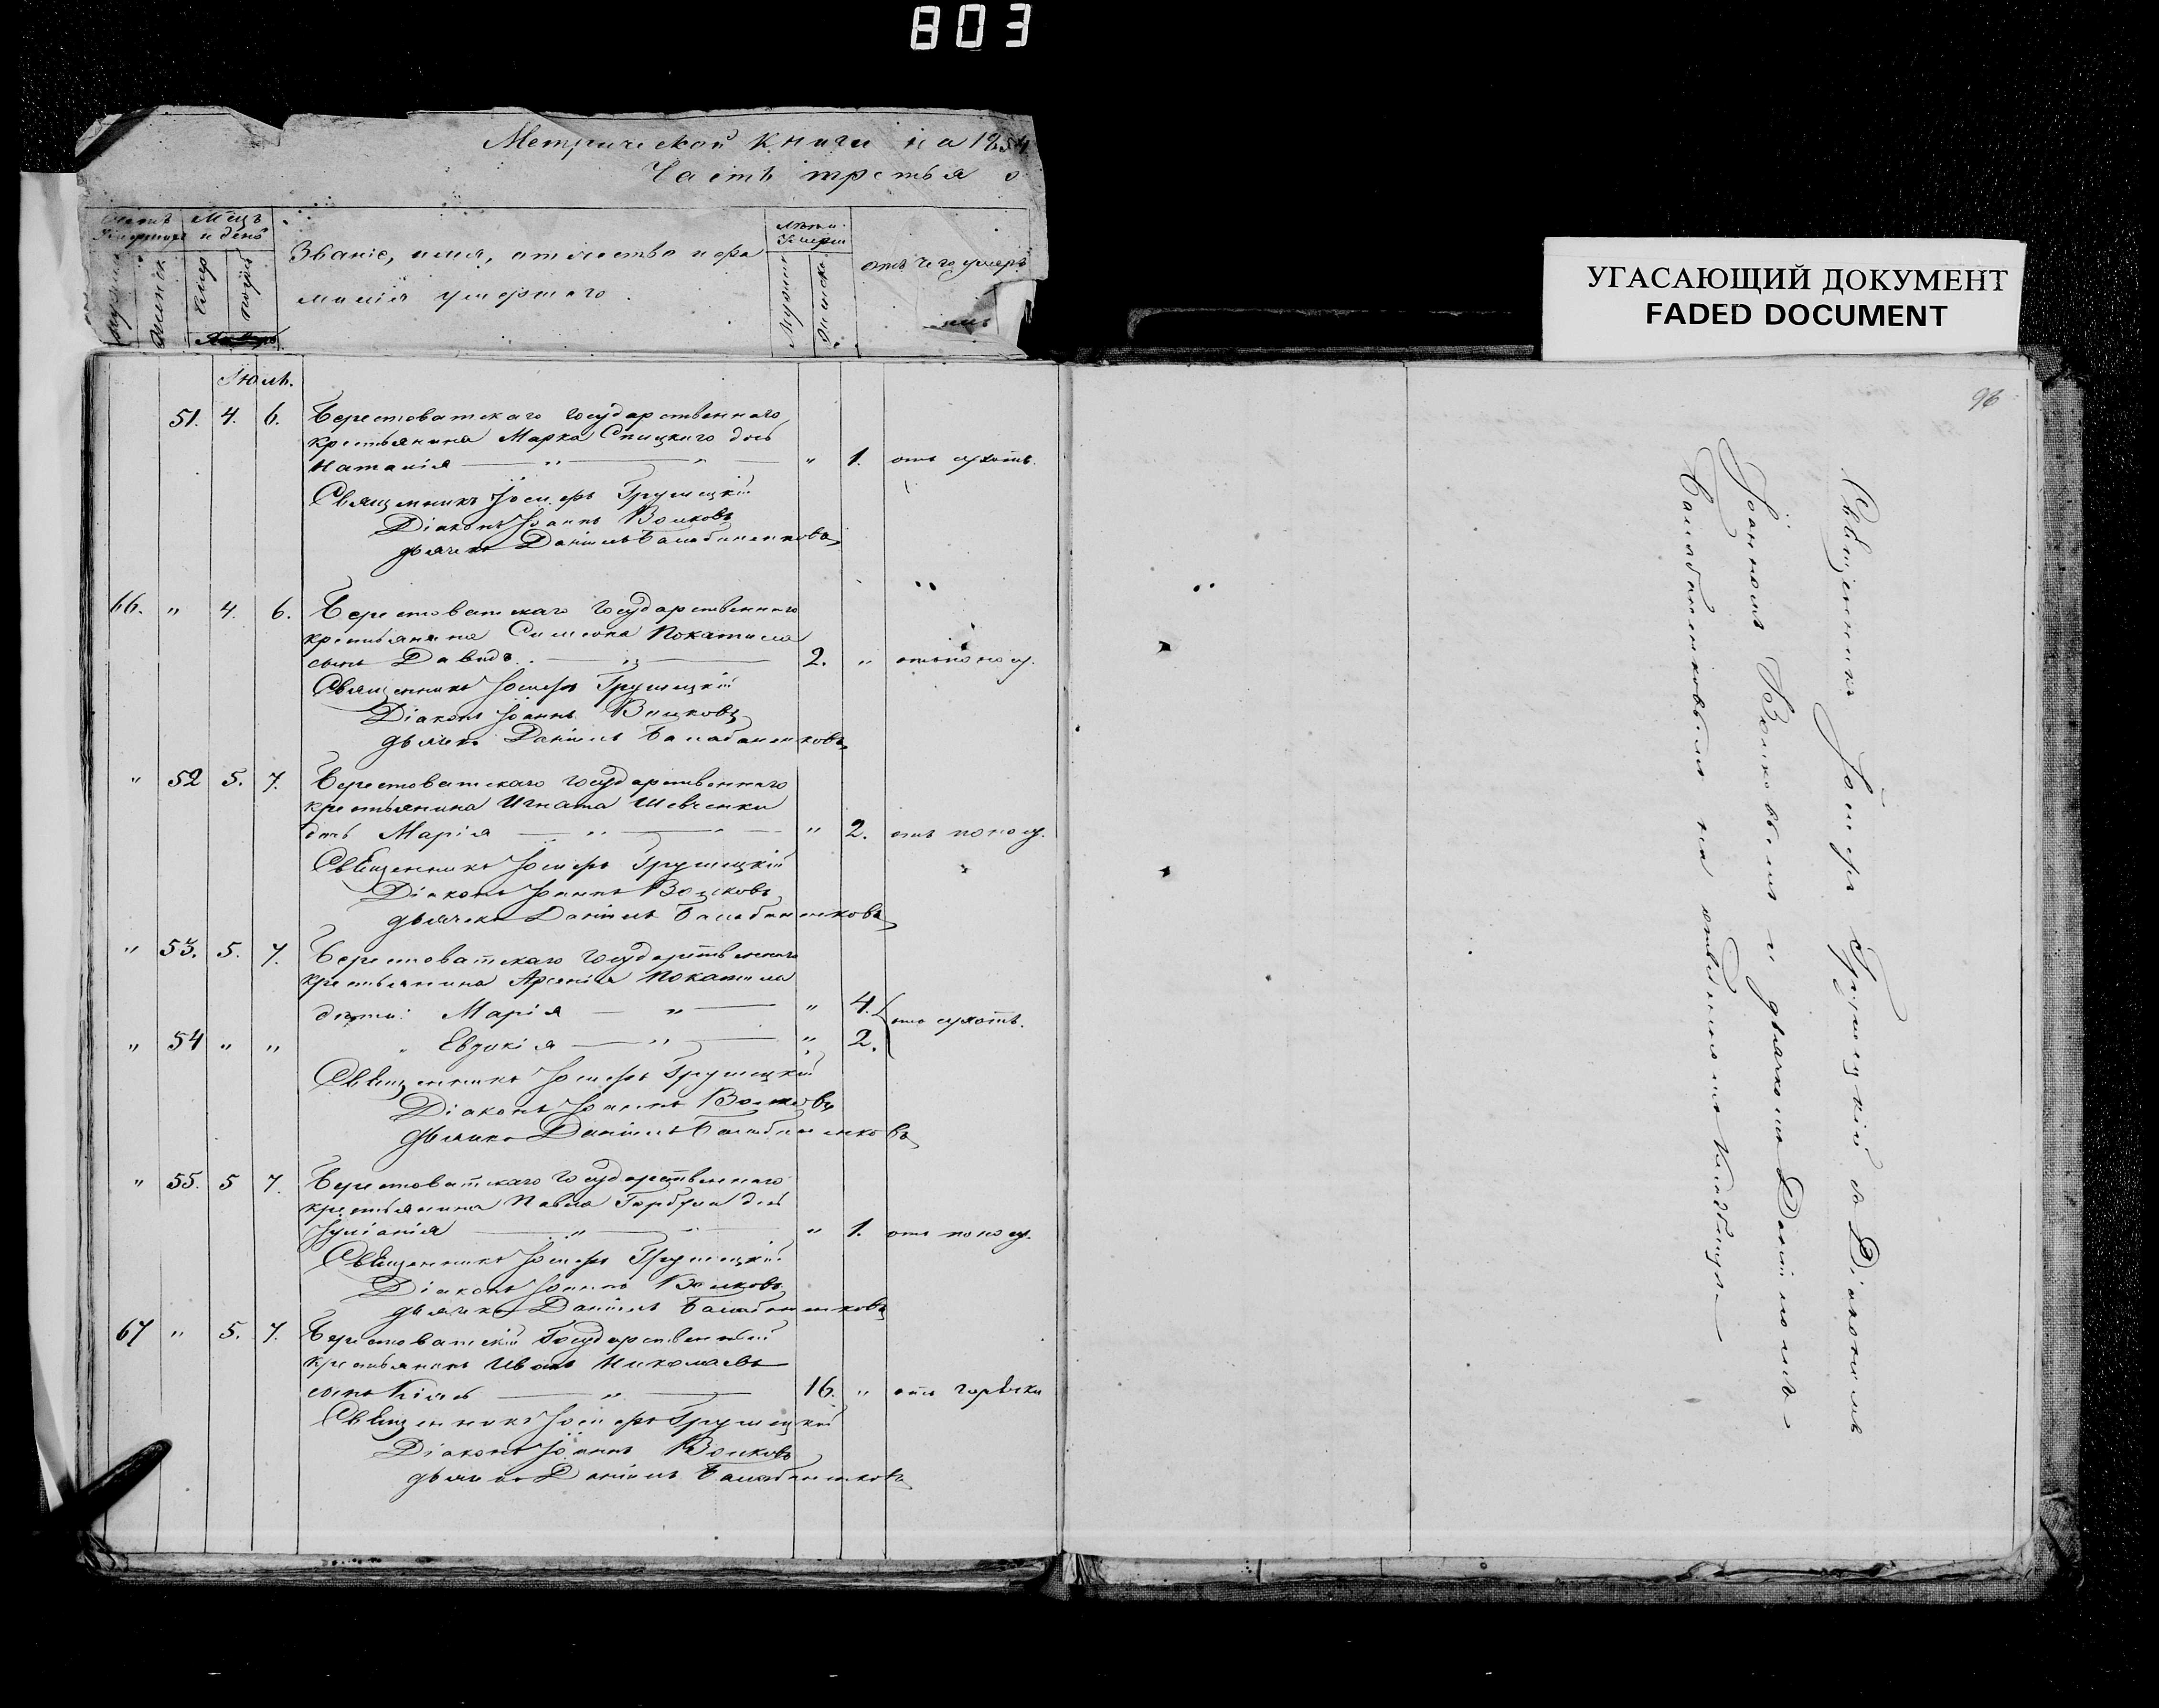 803
Метрической книги на 1854
Часть третья о
УГАСАЮЩИЙ ДОКУМЕНТ
FADED DOCUMENT
Мѣцъ
и день
Званіе, имя, отчество и фа
милія умершаго.
Лѣта
Умерш
отъ чего умеръ
Женск
Умер
Мужеск
Женска
96
Іюль.
51. 4. 6. Берестоватскаго государственнаго
крестьянина Марка Спицкаго дочь
Наталія — " — " — " 1. отъ сухотъ.
Священникъ Іосифъ Грушецкій
Діаконъ Іоаннъ Волковъ
дьячекъ Даніилъ Балабаненковъ
66. " 4. 6. Берестоватскаго государственнаго
крестьянина Симеона Покатила
сынъ Давидъ. — " — 2. " отъ поносу.
Священникъ Іосифъ Грушецкій
Діаконъ Іоаннъ Волковъ
дьячекъ Даніилъ Балабаненковъ
" 52 5. 7. Берестоватскаго государственнаго
крестьянина Игната Шевченки
дочь Марія — " — " — " 2. отъ поносу.
Священникъ Іосифъ Грушецкій
Діаконъ Іоаннъ Волковъ
дьячекъ Даніилъ Балабаненковъ
" 53. 5. 7. Берестоватскаго государственнаго
крестьянина Арсенія Покатила
дѣти: Марія — " — " 4.
отъ сухотъ.
" 54 " " " Евдокія — " — " 2.
Священникъ Іосифъ Грушецкій
Діаконъ Іоаннъ Волковъ
дьячекъ Даніилъ Балабаненковъ
" 55. 5 7. Берестоватскаго государственнаго
крестьянина Павла Горбуля дочь
Іуліанія — " — " 1. отъ поносу.
Священникъ Іосифъ Грушецкій
Діаконъ Іоаннъ Волковъ
дьячекъ Даніилъ Балабаненковъ
67 " 5. 7. Берестоватскій Государственный
крестьянинъ Иванъ Николаевъ
сынъ Кіямъ — " — 16. " отъ горячки
Священникъ Іосифъ Грушецкій
Діаконъ Іоаннъ Волковъ
дьячекъ Даніилъ Балабаненковъ
Священникъ Іосифъ Грушецкій съ Діакономъ
Іоанномъ Волковымъ и дьячкомъ Даніиломъ
Балабаненковымъ на отведенномъ кладбищѣ